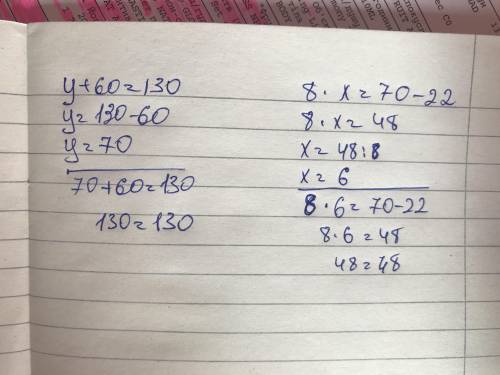 y+60=130
y=130-60
y=70
70+60=130
130=130
8·x=70-22
8·x=48
x=48:8
x=6
8·6=70-22
8·6=48
48=48